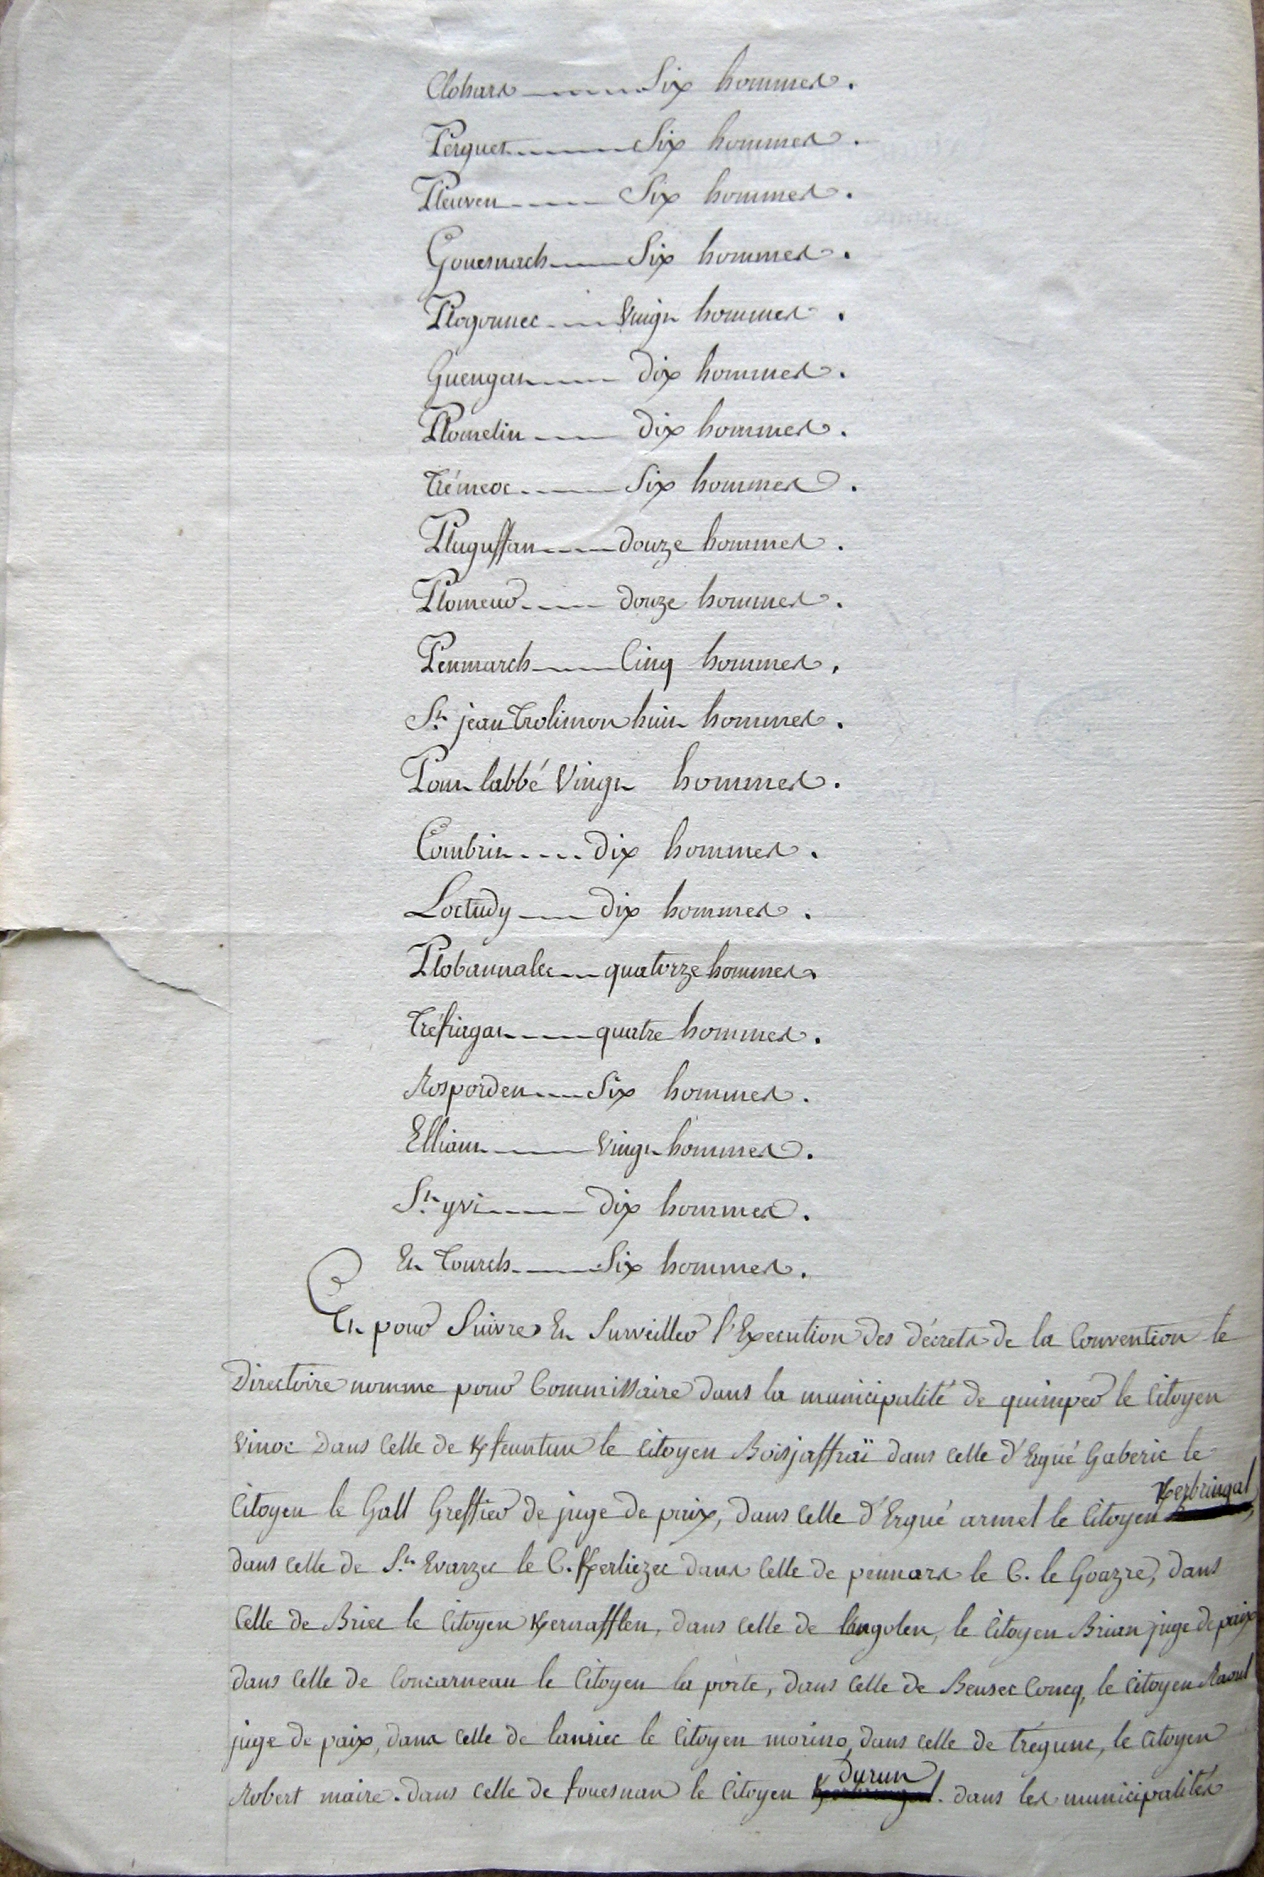 Clohars ------ Six hommes.
Perguet ------ Six hommes.
Pleuven ----- Six hommes.
Gouesnach ---- Six hommes.
Plogonnec ---- Vingt hommes.
Guengat ---- dix hommes.
Plomelin ---- dix hommes.
Trémeoc ---- Six hommes.
Pluguffan ---- douze hommes.
Plomeur ---- douze hommes.
Penmarch ---- Cinq hommes.
St. jean Trolimon huit hommes.
Pont labbé Vingt hommes.
Combrit ---- dix hommes.
Loctudy ---- dix hommes.
Plobannalec --- quatorze hommes.
Tréfiagat ---- quatre hommes.
Rosporden --- Six hommes.
Elliant ---- Vingt hommes.
St. yvi ---- dix hommes.
Et Tourch ---- Six hommes.
Et pour Suivre Et Surveiller l'Execution des décrets de la Convention le
Directoire nomme pour Commissaire dans la municipalité de quimper le Citoyen
Vinoc dans Celle de Kfeunteun le Citoyen Boisjaffraï dans celle d'Ergué Gaberic le
Citoyen le Gall Greffier de juge de paix, dans Celle d'Ergué armel le Citoyen Kerbringal,
dans celle de St. Evarzec le C. Kerliezec dans Celle de pennars le C. le Goazre, dans
Celle de Briec le Citoyen Kernafflen, dans celle de langolen, le Citoyen Brian juge de paix
dans celle de Concarneau le Citoyen la porte, dans Celle de Beusec Concq, le Citoyen Raoul
juge de paix, dans celle de lanriec le Citoyen morino, dans celle de trégunc, le Citoyen
Robert maire. dans Celle de fouesnan le Citoyen Durun. dans les municipalités